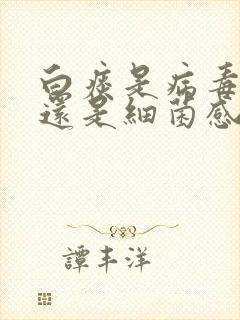 白痰是病毒
還是細菌感
譚丰洋